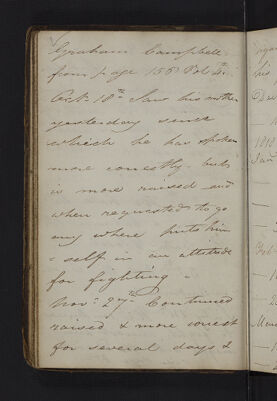 Graham Campbell
from page 155 Vol 4th
Octr 18th Saw his mother
yesterday since
which he has spoken
more conestly. but
is more raised and
when requested to go
any where puts him
-self in an attitude
for fighting -
Novr 27th Continued
raised & more conest
for several days &
his
1818